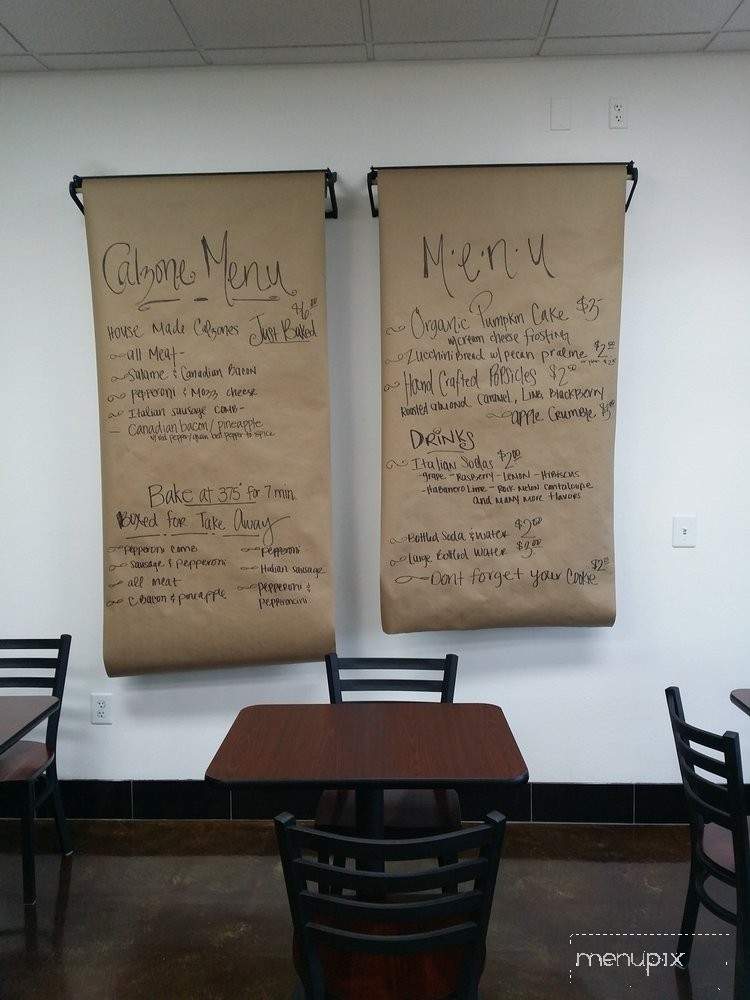 Calzone Menu
$6.00
House Made Calzones Just Baked
all Meat-
Salame & Canadian Bacon
pepperoni & Mozz cheese
Italian sausage comb-
Canadian bacon/pineapple
w/red pepper/green bell pepper to spice
Bake at 375° for 7 min.
Boxed for Take Away
Pepperoni
Sausage & Pepperoni
all meat
C. Bacon & pineapple
Pepperoni
Italian sausage
pepperoni &
pepperoncini
M·e·n·u
Organic Pumpkin Cake $3-
w/cream cheese frosting
Zucchini Bread w/pecan praline $2.00
Hand Crafted Popsicles $2.50
Roasted almond caramel, Lime, BlackBerry
apple Crumble $3
DRINKS
Italian Sodas $2.00
-grape - Raspberry - Lemon - Hibiscus
-Habanero Lime - Rock Melon cantaloupe
and many more flavors
Bottled Soda & water $2.00
Large Bottled Water $3.00
Dont forget your Cookie $2.00
menupix